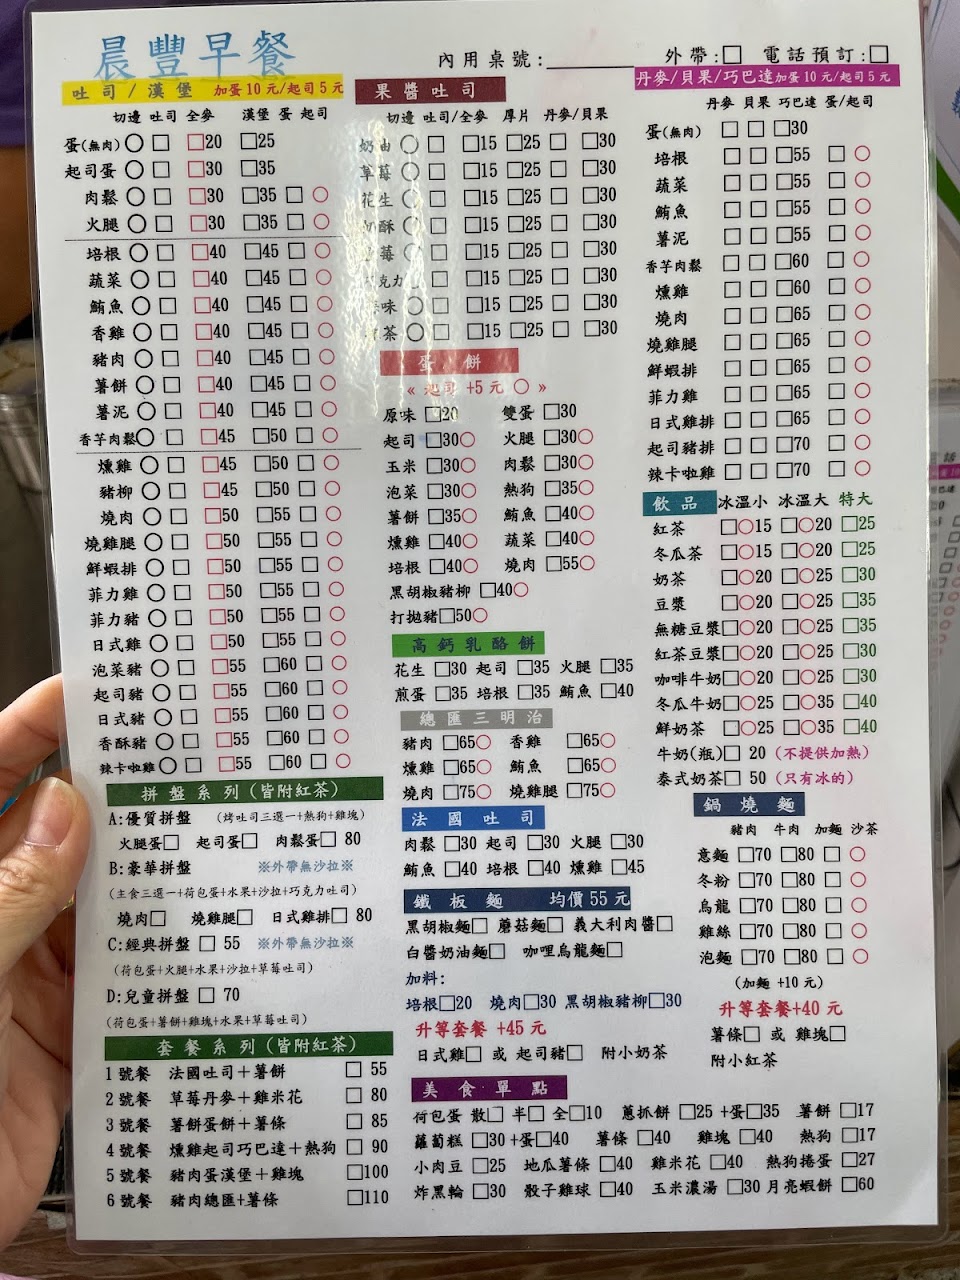 晨豐早餐
內用桌號:
外帶:□ 電話預訂:□
吐司/漢堡 加蛋10元/起司5元
切邊 吐司 全麥 漢堡 蛋 起司
蛋(無肉) ○ □ □20 □25
起司蛋 ○ □ □30 □35
肉鬆 ○ □ □30 □35 □ ○
火腿 ○ □ □30 □35 □ ○
培根 ○ □ □40 □45 □ ○
蔬菜 ○ □ □40 □45 □ ○
鮪魚 ○ □ □40 □45 □ ○
香雞 ○ □ □40 □45 □ ○
豬肉 ○ □ □40 □45 □ ○
薯餅 ○ □ □40 □45 □ ○
薯泥 ○ □ □40 □45 □ ○
香芋肉鬆 ○ □ □45 □50 □ ○
燻雞 ○ □ □45 □50 □ ○
豬柳 ○ □ □45 □50 □ ○
燒肉 ○ □ □50 □55 □ ○
燒雞腿 ○ □ □50 □55 □ ○
鮮蝦排 ○ □ □50 □55 □ ○
菲力雞 ○ □ □50 □55 □ ○
菲力豬 ○ □ □50 □55 □ ○
日式雞 ○ □ □50 □55 □ ○
泡菜豬 ○ □ □55 □60 □ ○
起司豬 ○ □ □55 □60 □ ○
日式豬 ○ □ □55 □60 □ ○
香酥豬 ○ □ □55 □60 □ ○
辣卡啦雞 ○ □ □55 □60 □ ○
拼盤系列(皆附紅茶)
A:優質拼盤 (烤吐司三選一+熱狗+雞塊)
火腿蛋□ 起司蛋□ 肉鬆蛋□ 80
B:豪華拼盤 ※外帶無沙拉※
(主食三選一+荷包蛋+水果+沙拉+巧克力吐司)
燒肉□ 燒雞腿□ 日式雞排□ 80
C:經典拼盤 □ 55 ※外帶無沙拉※
(荷包蛋+火腿+水果+沙拉+草莓吐司)
D:兒童拼盤 □ 70
(荷包蛋+薯餅+雞塊+水果+草莓吐司)
套餐系列(皆附紅茶)
1號餐 法國吐司+薯餅 □ 55
2號餐 草莓丹麥+雞米花 □ 80
3號餐 薯餅蛋餅+薯條 □ 85
4號餐 燻雞起司巧巴達+熱狗 □ 90
5號餐 豬肉蛋漢堡+雞塊 □100
6號餐 豬肉總匯+薯條 □110
果醬吐司
切邊 吐司/全麥 厚片 丹麥/貝果
奶油 ○ □ □15 □25 □ □30
草莓 ○ □ □15 □25 □ □30
花生 ○ □ □15 □25 □ □30
奶酥 ○ □ □15 □25 □ □30
莓 ○ □ □15 □25 □ □30
克力 ○ □ □15 □25 □ □30
味 ○ □ □15 □25 □ □30
茶 ○ □ □15 □25 □ □30
蛋餅
« 起司 +5元 ○ »
原味 □20 雙蛋 □30
起司 □30○ 火腿 □30○
玉米 □30○ 肉鬆 □30○
泡菜 □30○ 熱狗 □35○
薯餅 □35○ 鮪魚 □40○
燻雞 □40○ 蔬菜 □40○
培根 □40○ 燒肉 □55○
黑胡椒豬柳 □40○
打拋豬□50○
高鈣乳酪餅
花生 □30 起司 □35 火腿 □35
煎蛋 □35 培根 □35 鮪魚 □40
總匯三明治
豬肉 □65○ 香雞 □65○
燻雞 □65○ 鮪魚 □65○
燒肉 □75○ 燒雞腿 □75○
法國吐司
肉鬆 □30 起司 □30 火腿 □30
鮪魚 □40 培根 □40 燻雞 □45
鐵板麵 均價55元
黑胡椒麵□ 蘑菇麵□ 義大利肉醬□
白醬奶油麵□ 咖哩烏龍麵□
加料:
培根□20 燒肉□30 黑胡椒豬柳□30
升等套餐 +45 元
日式雞□ 或 起司豬□ 附小奶茶
美食單點
荷包蛋 散□ 半□ 全□10 蔥抓餅 □25 +蛋□35 薯餅 □17
蘿蔔糕 □30 +蛋□40 薯條 □40 雞塊 □40 熱狗 □17
小肉豆 □25 地瓜薯條 □40 雞米花 □40 熱狗捲蛋 □27
炸黑輪 □30 骰子雞球 □40 玉米濃湯 □30 月亮蝦餅 □60
丹麥/貝果/巧巴達加蛋10元/起司5元
丹麥 貝果 巧巴達 蛋/起司
蛋(無肉) □ □ □30
培根 □ □ □55 □ ○
蔬菜 □ □ □55 □ ○
鮪魚 □ □ □55 □ ○
薯泥 □ □ □55 □ ○
香芋肉鬆 □ □ □60 □ ○
燻雞 □ □ □60 □ ○
燒肉 □ □ □65 □ ○
燒雞腿 □ □ □65 □ ○
鮮蝦排 □ □ □65 □ ○
菲力雞 □ □ □65 □ ○
日式雞排 □ □ □65 □ ○
起司豬排 □ □ □70 □ ○
辣卡啦雞 □ □ □70 □ ○
飲品 冰溫小 冰溫大 特大
紅茶 □○15 □○20 □25
冬瓜茶 □○15 □○20 □25
奶茶 □○20 □○25 □30
豆漿 □○20 □○25 □35
無糖豆漿□○20 □○25 □35
紅茶豆漿□○20 □○25 □30
咖啡牛奶□○20 □○25 □30
冬瓜牛奶□○25 □○35 □40
鮮奶茶 □○25 □○35 □40
牛奶(瓶)□ 20 (不提供加熱)
泰式奶茶□ 50 (只有冰的)
鍋燒麵
豬肉 牛肉 加麵 沙茶
意麵 □70 □80 □ ○
冬粉 □70 □80 □ ○
烏龍 □70 □80 □ ○
雞絲 □70 □80 □ ○
泡麵 □70 □80 □ ○
(加麵 +10元)
升等套餐+40 元
薯條□ 或 雞塊□
附小紅茶